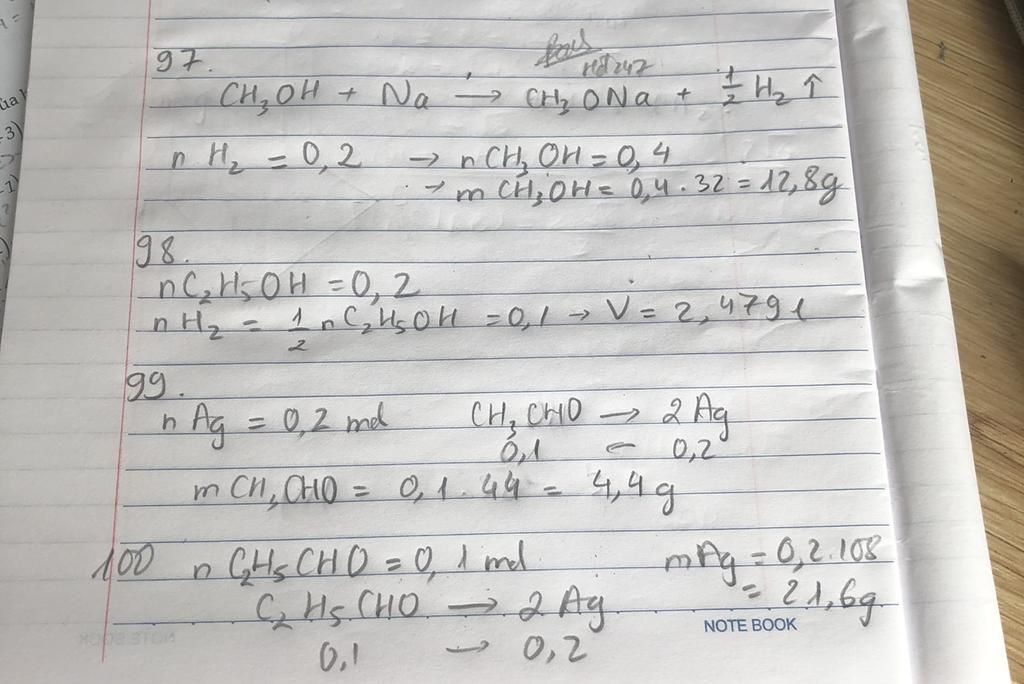 97.
Hd 247
CH3OH + Na → CH3ONa + 1/2 H2 ↑
n H2 = 0,2 → nCH3OH = 0,4
→ m CH3OH = 0,4 . 32 = 12,8g
98.
nC2H5OH = 0,2
n H2 = 1/2 nC2H5OH = 0,1 → V = 2,479 l
99.
n Ag = 0,2 mol CH3CHO → 2 Ag
0,1 ← 0,2
m CH3CHO = 0,1 . 44 = 4,4 g
100 n C2H5CHO = 0,1 mol mAg = 0,2.108
C2H5CHO → 2 Ag = 21,6g
NOTE BOOK
0,1 → 0,2